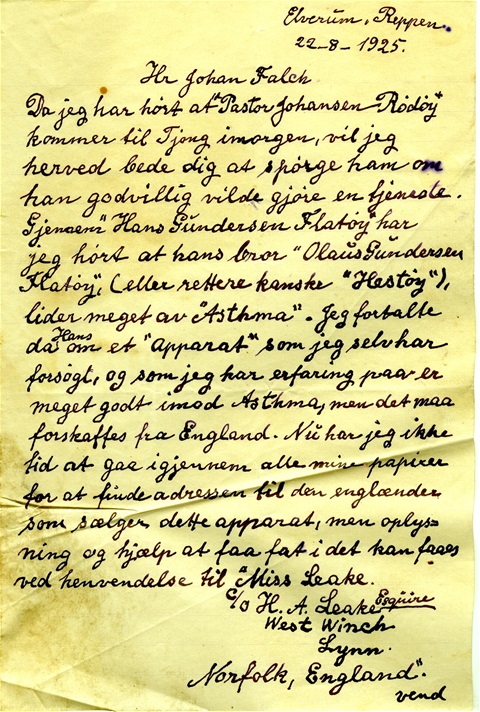 Elverum, Reppen.
22-8-1925.
Hr Johan Falch
Da jeg har hört at "Pastor Johansen-Rödöy"
kommer til Tjong imorgen, vil jeg
herved bede dig at spörge ham om
han godvillig vilde gjöre en tjeneste.
Gjennem "Hans Gundersen Flatöy" har
jeg hört at hans bror "Olaus Gundersen
Flatöy", (eller rettere kanske "Hestöy"),
lider meget av "Asthma". Jeg fortalte
da Hans om et "Apparat" som jeg selv har
forsögt, og som jeg har erfaring paa er
meget godt imod Asthma, men det maa
forskaffes fra England. Nu har jeg ikke
tid at gaa igjennem alle mine papirer
for at finde adressen til den englænder
som sælger dette apparat, men oplys-
ning og hjælp at faa fat i det kan faaes
ved henvendelse til "Miss Leake.
c/o H. A. Leake Esquire
West Winch
Lynn.
Norfolk, England".
vend